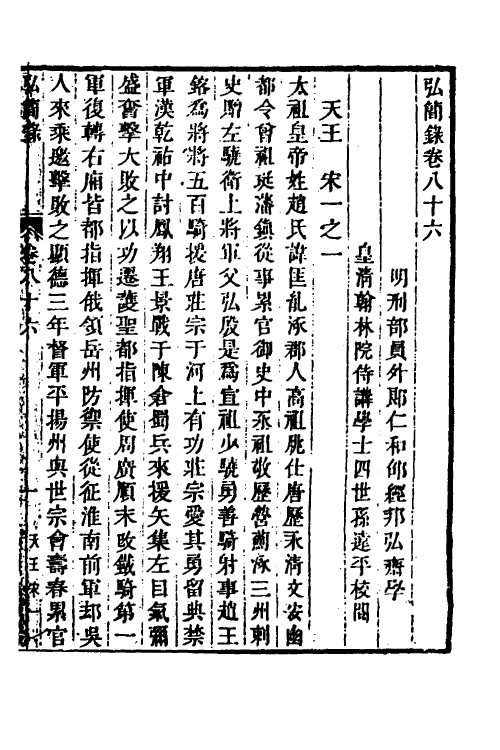 弘簡錄卷八十六
明刑部員外郎仁和邵經邦弘齋學
皇清翰林院侍講學士四世孫遠平校閱
天王　宋一之一
太祖皇帝姓趙氏諱匡胤涿郡人高祖朓仕唐歷永清文安幽
都令曾祖珽藩鎮從事累官御史中丞祖敬歷營薊涿三州刺
史贈左驍衛上將軍父弘殷是為宣祖少驍勇善騎射事趙王
鎔為將將五百騎援唐莊宗于河上有功莊宗愛其勇留典禁
軍漢乾祐中討鳳翔王景戰于陳倉蜀兵來援矢集左目氣彌
盛奮擊大敗之以功遷護聖都指揮使周廣順末改鐵騎第一
軍復轉右廂皆都指揮俄領岳州防禦使從征淮南前軍却吳
人來乘邀擊敗之顯德三年督軍平揚州與世宗會壽春累官
弘簡錄
卷八十六
一
天王宋一